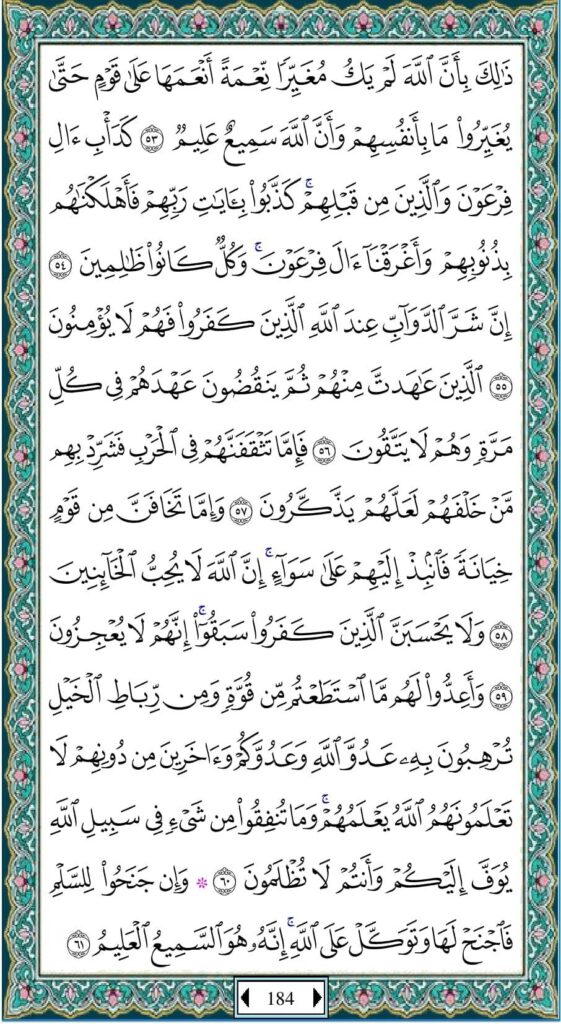 ذَٰلِكَ بِأَنَّ ٱللَّهَ لَمْ يَكُ مُغَيِّرًا نِّعْمَةً أَنْعَمَهَا عَلَىٰ قَوْمٍ حَتَّىٰ
يُغَيِّرُوا۟ مَا بِأَنفُسِهِمْ وَأَنَّ ٱللَّهَ سَمِيعٌ عَلِيمٌ ٥٣ كَدَأْبِ ءَالِ
فِرْعَوْنَ وَٱلَّذِينَ مِن قَبْلِهِمْ ۚ كَذَّبُوا۟ بِـَٔايَـٰتِ رَبِّهِمْ فَأَهْلَكْنَـٰهُم
بِذُنُوبِهِمْ وَأَغْرَقْنَآ ءَالَ فِرْعَوْنَ ۚ وَكُلٌّ كَانُوا۟ ظَـٰلِمِينَ ٥٤
إِنَّ شَرَّ ٱلدَّوَآبِّ عِندَ ٱللَّهِ ٱلَّذِينَ كَفَرُوا۟ فَهُمْ لَا يُؤْمِنُونَ
٥٥ ٱلَّذِينَ عَـٰهَدتَّ مِنْهُمْ ثُمَّ يَنقُضُونَ عَهْدَهُمْ فِى كُلِّ
مَرَّةٍ وَهُمْ لَا يَتَّقُونَ ٥٦ فَإِمَّا تَثْقَفَنَّهُمْ فِى ٱلْحَرْبِ فَشَرِّدْ بِهِم
مَّنْ خَلْفَهُمْ لَعَلَّهُمْ يَذَّكَّرُونَ ٥٧ وَإِمَّا تَخَافَنَّ مِن قَوْمٍ
خِيَانَةً فَٱنۢبِذْ إِلَيْهِمْ عَلَىٰ سَوَآءٍ ۚ إِنَّ ٱللَّهَ لَا يُحِبُّ ٱلْخَآئِنِينَ
٥٨ وَلَا يَحْسَبَنَّ ٱلَّذِينَ كَفَرُوا۟ سَبَقُوٓا۟ ۚ إِنَّهُمْ لَا يُعْجِزُونَ
٥٩ وَأَعِدُّوا۟ لَهُم مَّا ٱسْتَطَعْتُم مِّن قُوَّةٍ وَمِن رِّبَاطِ ٱلْخَيْلِ
تُرْهِبُونَ بِهِۦ عَدُوَّ ٱللَّهِ وَعَدُوَّكُمْ وَءَاخَرِينَ مِن دُونِهِمْ لَا
تَعْلَمُونَهُمُ ٱللَّهُ يَعْلَمُهُمْ ۚ وَمَا تُنفِقُوا۟ مِن شَىْءٍ فِى سَبِيلِ ٱللَّهِ
يُوَفَّ إِلَيْكُمْ وَأَنتُمْ لَا تُظْلَمُونَ ٦٠ * وَإِن جَنَحُوا۟ لِلسَّلْمِ
فَٱجْنَحْ لَهَا وَتَوَكَّلْ عَلَى ٱللَّهِ ۚ إِنَّهُۥ هُوَ ٱلسَّمِيعُ ٱلْعَلِيمُ ٦١
184